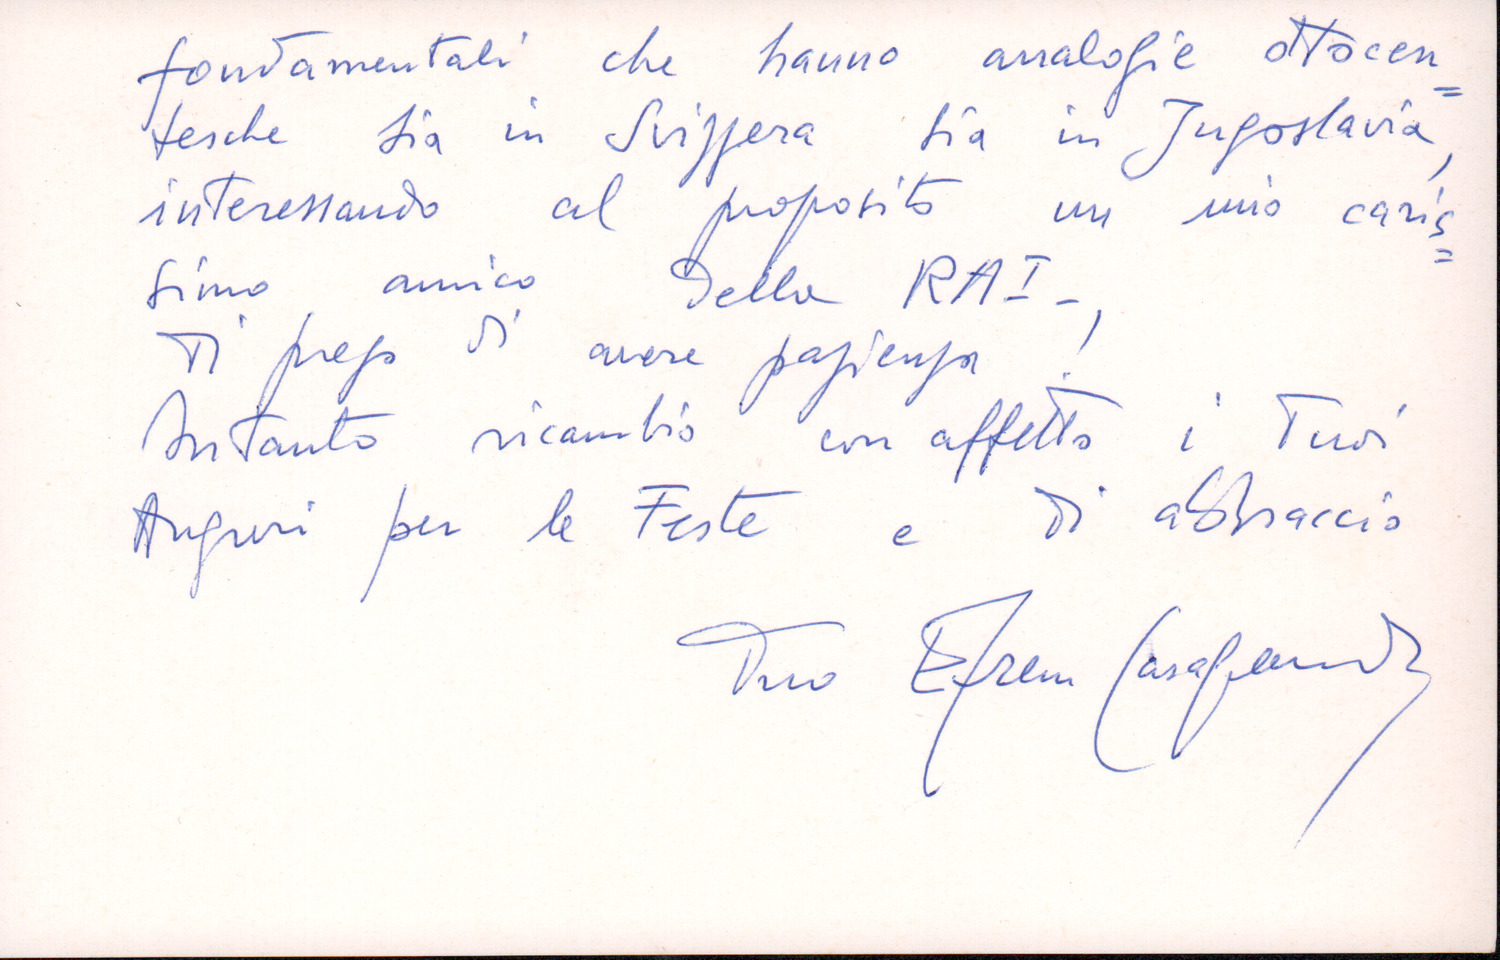 fondamentali che hanno analogie ottocen=
tesche sia in Svizzera sia in Jugoslavia,
interessando al proposito un mio caris=
simo amico della RAI-,
Ti prego di avere pazienza!
Intanto ricambio con affetto i Tuoi
Auguri per le Feste e Ti abbraccio
Tuo Efrem Casagrande